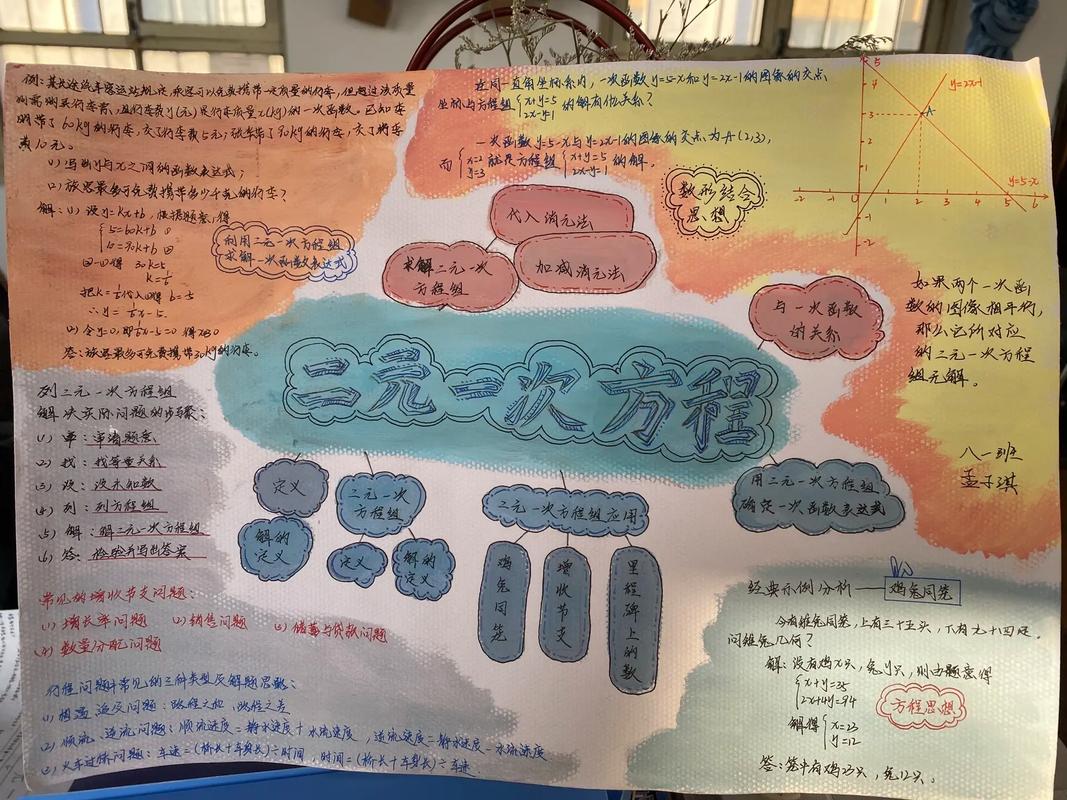 例：某长途汽车客运站规定，乘客可以免费携带一定质量的行李，但超过该质量
则需购买行李票，且行李费y(元)是行李质量x(kg)的一次函数。已知李
明带了60kg的行李，交了行李费5元；张华带了90kg的行李，交了行李
费10元。
(1)写出y与x之间的函数表达式；
(2)旅客最多可免费携带多少千克的行李？
解：(1)设y=kx+b，根据题意，得
5=60k+b ①
10=90k+b ②
②-①得 30k=5
k=1/6
把k=1/6代入①得 b=-5
∴y=1/6x-5.
(2)令y=0,即1/6x-5=0 得x=30
答：旅客最多可免费携带30kg的行李。
利用二元一次方程组
求解一次函数表达式
在同一直角坐标系内，一次函数y=5-x和y=2x-1的图像的交点
坐标与方程组
x+y=5
2x-y=1
的解有何关系？
一次函数y=5-x与y=2x-1的图像的交点为A(2,3)，
而
x=2
y=3
就是方程组
x+y=5
2x-y=1
的解。
数形结合
思想
y=2x-1
A
y=5-x
5
4
3
1
-1
-2
-2 -1 1 2 3 4 5 6 x
代入消元法
求解二元一次
方程组
加减消元法
与一次函数
的关系
如果两个一次函
数的图像相平行，
那么它所对应
的二元一次方程
组无解。
八一班
孟子淇
二元一次方程
列二元一次方程组
解决实际问题的步骤：
(1)审：审清题意
(2)找：找等量关系
(3)设：设未知数
(4)列：列方程组
(5)解：解二元一次方程组
(6)答：检验并写出答案
定义
解的
定义
二元一次
方程组
定义
解的
定义
二元一次方程组应用
鸡兔同笼
增收节支
里程碑上的数
用二元一次方程组
确定一次函数表达式
常见的增收节支问题：
(1)增长率问题 (2)销售问题 (3)储蓄与贷款问题
(4)数量分配问题
行程问题中常见的三种类型及解题思路：
(1)相遇、追及问题：路程之和、路程之差
(2)顺流、逆流问题：顺流速度=静水速度+水流速度，逆流速度=静水速度-水流速度
(3)火车过桥问题：车速=(桥长+车身长)÷时间，时间=(桥长+车身长)÷车速.
经典示例分析——鸡兔同笼
今有雉兔同笼，上有三十五头，下有九十四足，
问雉兔几何？
解：设有鸡x只，兔y只，则由题意得
x+y=35
2x+4y=94
方程思想
解得
x=23
y=12
答：笼中有鸡23只，兔12只。